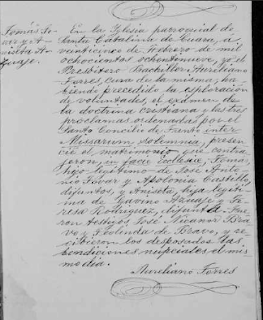 Tomás To-
var y A-
niseta A-
guaje.
En la Iglesia parroquial de
Santa Catalina de Guara, a
veinticinco de Febrero de mil
ochocientos ochentonueve, yo el
Presbítero Bachiller Aureliano
Torres, Cura de la misma; ha-
biendo precedido la esploración
de voluntades, el exámen de
la doctrina Cristiana y las tres
proclamas ordenadas por el
Santo Concilio de Trento inter
Missarum solemnia, presen-
cié el matrimonio que contra-
jeron, in facie Ecclesie, Tomás,
hijo legítimo de José Anto-
nio Tovar y Antonia Castillo,
difuntos, y Aniseta, hija legíti-
ma de Arauje y Te-
resa Rodriguez, difunta. Fue-
ron testigos José Nicanor Bra-
vo y Teolinda de Bravo, y re-
cibieron los desposados las
bendiciones nupciales el mis-
mo dia.
Aureliano Torres